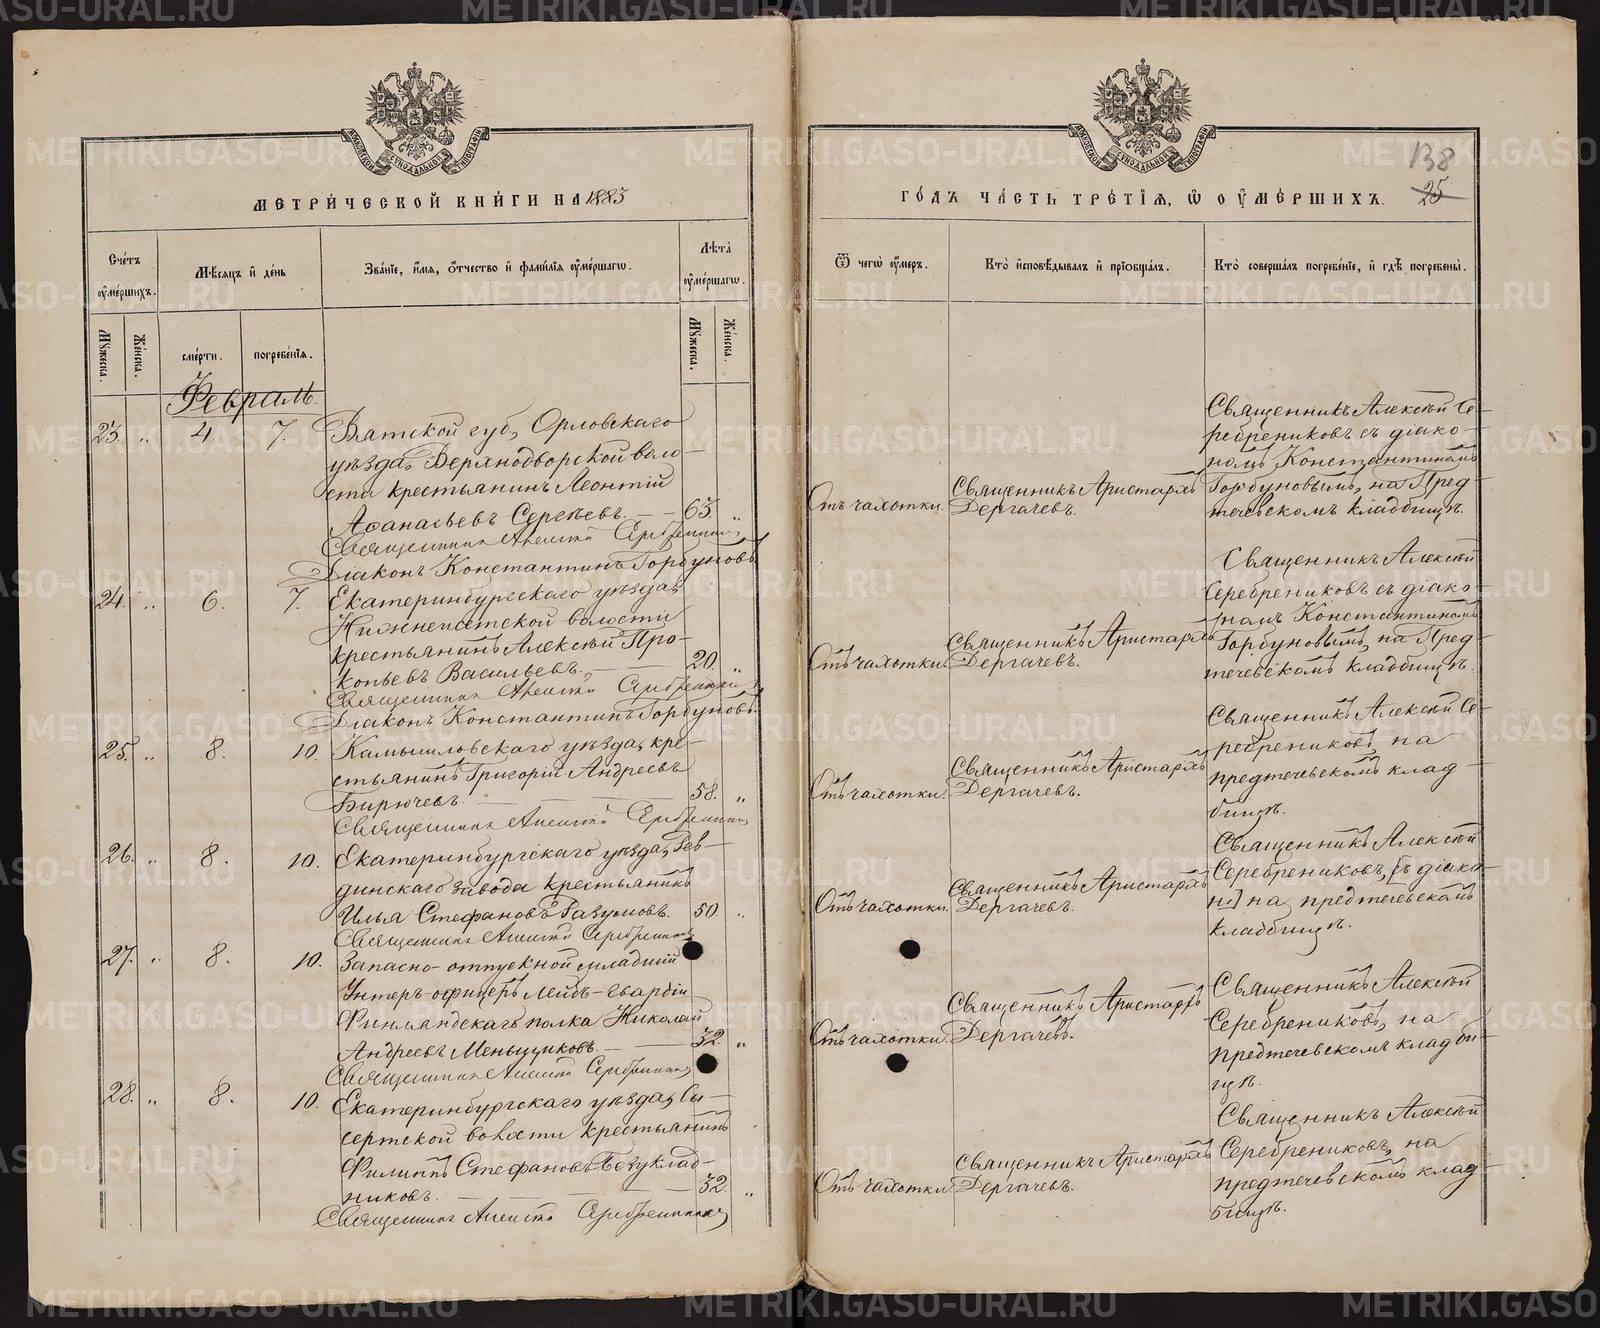 МЕТРИ́ЧЕСКОЙ КНИ́ГИ НА 1883
ГО́ДЪ ЧА́СТЬ ТРЕ́ТІЯ, Ѿ ОУМЕ́РШИХЪ.
138
25
Сче́тъ оумє́ршихъ.
Мѣ́сяцъ и де́нь
Зва́ніе, и́мя, о́тчество и фами́лія оуме́ршагѡ.
Лѣ́та оуме́ршагѡ.
Ѿ чегѡ̀ оу́меръ.
Кто̀ исповѣ́дывалъ и пріобща́лъ.
Кто̀ соверша́лъ погребе́ніе, и гдѣ̀ погребены̀.
Му́жеска.
Же́нска.
сме́рти.
погребе́нія.
Му́жеска.
Же́нска.
Февраль.
23. „ 4. 7. Вятской губ., Орловскаго
уѣзда, Верходворской воло-
сти крестьянинъ Леонтій
Аѳанасьевъ Сергѣевъ. — 63 „
Священникъ Алексѣй Серебренников
Діаконъ Константинъ Горбуновъ
Отъ чахотки.
Священникъ Аристархъ
Дергачевъ.
Священникъ Алексѣй Се-
ребрениковъ съ діако-
номъ Константиномъ
Горбуновымъ, на Пред-
течевскомъ кладбищѣ.
24. „ 6. 7. Екатеринбургскаго уѣзда,
Нижнеисетской волости
крестьянинъ Алексѣй Про-
копьевъ Васильевъ. — 20. „
Священникъ Алексѣй Серебренников
Діаконъ Константинъ Горбуновъ.
Отъ чахотки.
Священникъ Аристархъ
Дергачевъ.
Священникъ Алексѣй
Серебрениковъ съ діако-
номъ Константиномъ
Горбуновымъ, на Пред-
течевскомъ кладбищѣ.
25. „ 8. 10. Камышловскаго уѣзда, кре-
стьянинъ Григорій Андреевъ
Бирючевъ. — 58. „
Священникъ Алексѣй Серебренников
Отъ чахотки.
Священникъ Аристархъ
Дергачевъ.
Священникъ Алексѣй Се-
ребрениковъ, на
предтечевскомъ клад-
бищѣ.
26. „ 8. 10. Екатеринбургскаго уѣзда, Рев-
динскаго завода крестьянинъ
Илья Стефановъ Разумовъ. 50. „
Священникъ Алексѣй Серебренников
Отъ чахотки.
Священникъ Аристархъ
Дергачевъ.
Священникъ Алексѣй
Серебрениковъ, [съ діако-
н.] на предтечевскомъ
кладбищѣ.
27. „ 8. 10. Запасно-отпускной младшій
Унтеръ-офицеръ Лейбъ-Гвардіи
Финляндскаго полка Николай
Андреевъ Меньщиковъ. — 32 „
Священникъ Алексѣй Серебренников
Отъ чахотки.
Священникъ Аристархъ
Дергачевъ.
Священникъ Алексѣй
Серебрениковъ, на
предтечевскомъ кладби-
щѣ.
28. „ 8. 10. Екатеринбургскаго уѣзда, Сы-
сертской волости крестьянинъ
Филиппъ Стефановъ Безуклад-
никовъ. — 32. „
Священникъ Алексѣй Серебренников
Отъ чахотки.
Священникъ Аристархъ
Дергачевъ.
Священникъ Алексѣй
Серебрениковъ, на
предтечевскомъ клад-
бищѣ.